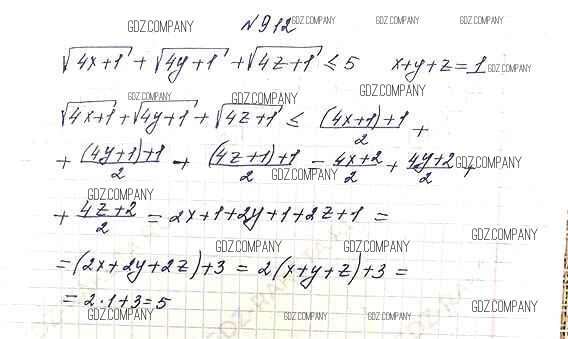 GDZ.COMPANY № 912 GDZ.COMPANY GDZ.COMPANY
√4x+1 + √4y+1 + √4z+1 ≤ 5 x+y+z=1
GDZ.COMPANY GDZ.COMPANY GDZ.COMPANY GDZ.COMPANY
√4x+1 + √4y+1 + √4z+1 ≤ (4x+1)+1/2 +
+ (4y+1)+1/2 + (4z+1)+1/2 - 4x+2/2 + 4y+2/2 +
GDZ.COMPANY GDZ.COMPANY GDZ.COMPANY
+ 4z+2/2 = 2x+1+2y+1+2z+1 =
GDZ.COMPANY GDZ.COMPANY GDZ.COMPANY
=(2x+2y+2z)+3 = 2(x+y+z)+3 =
= 2·1+3=5
GDZ.COMPANY GDZ.COMPANY GDZ.COMPANY